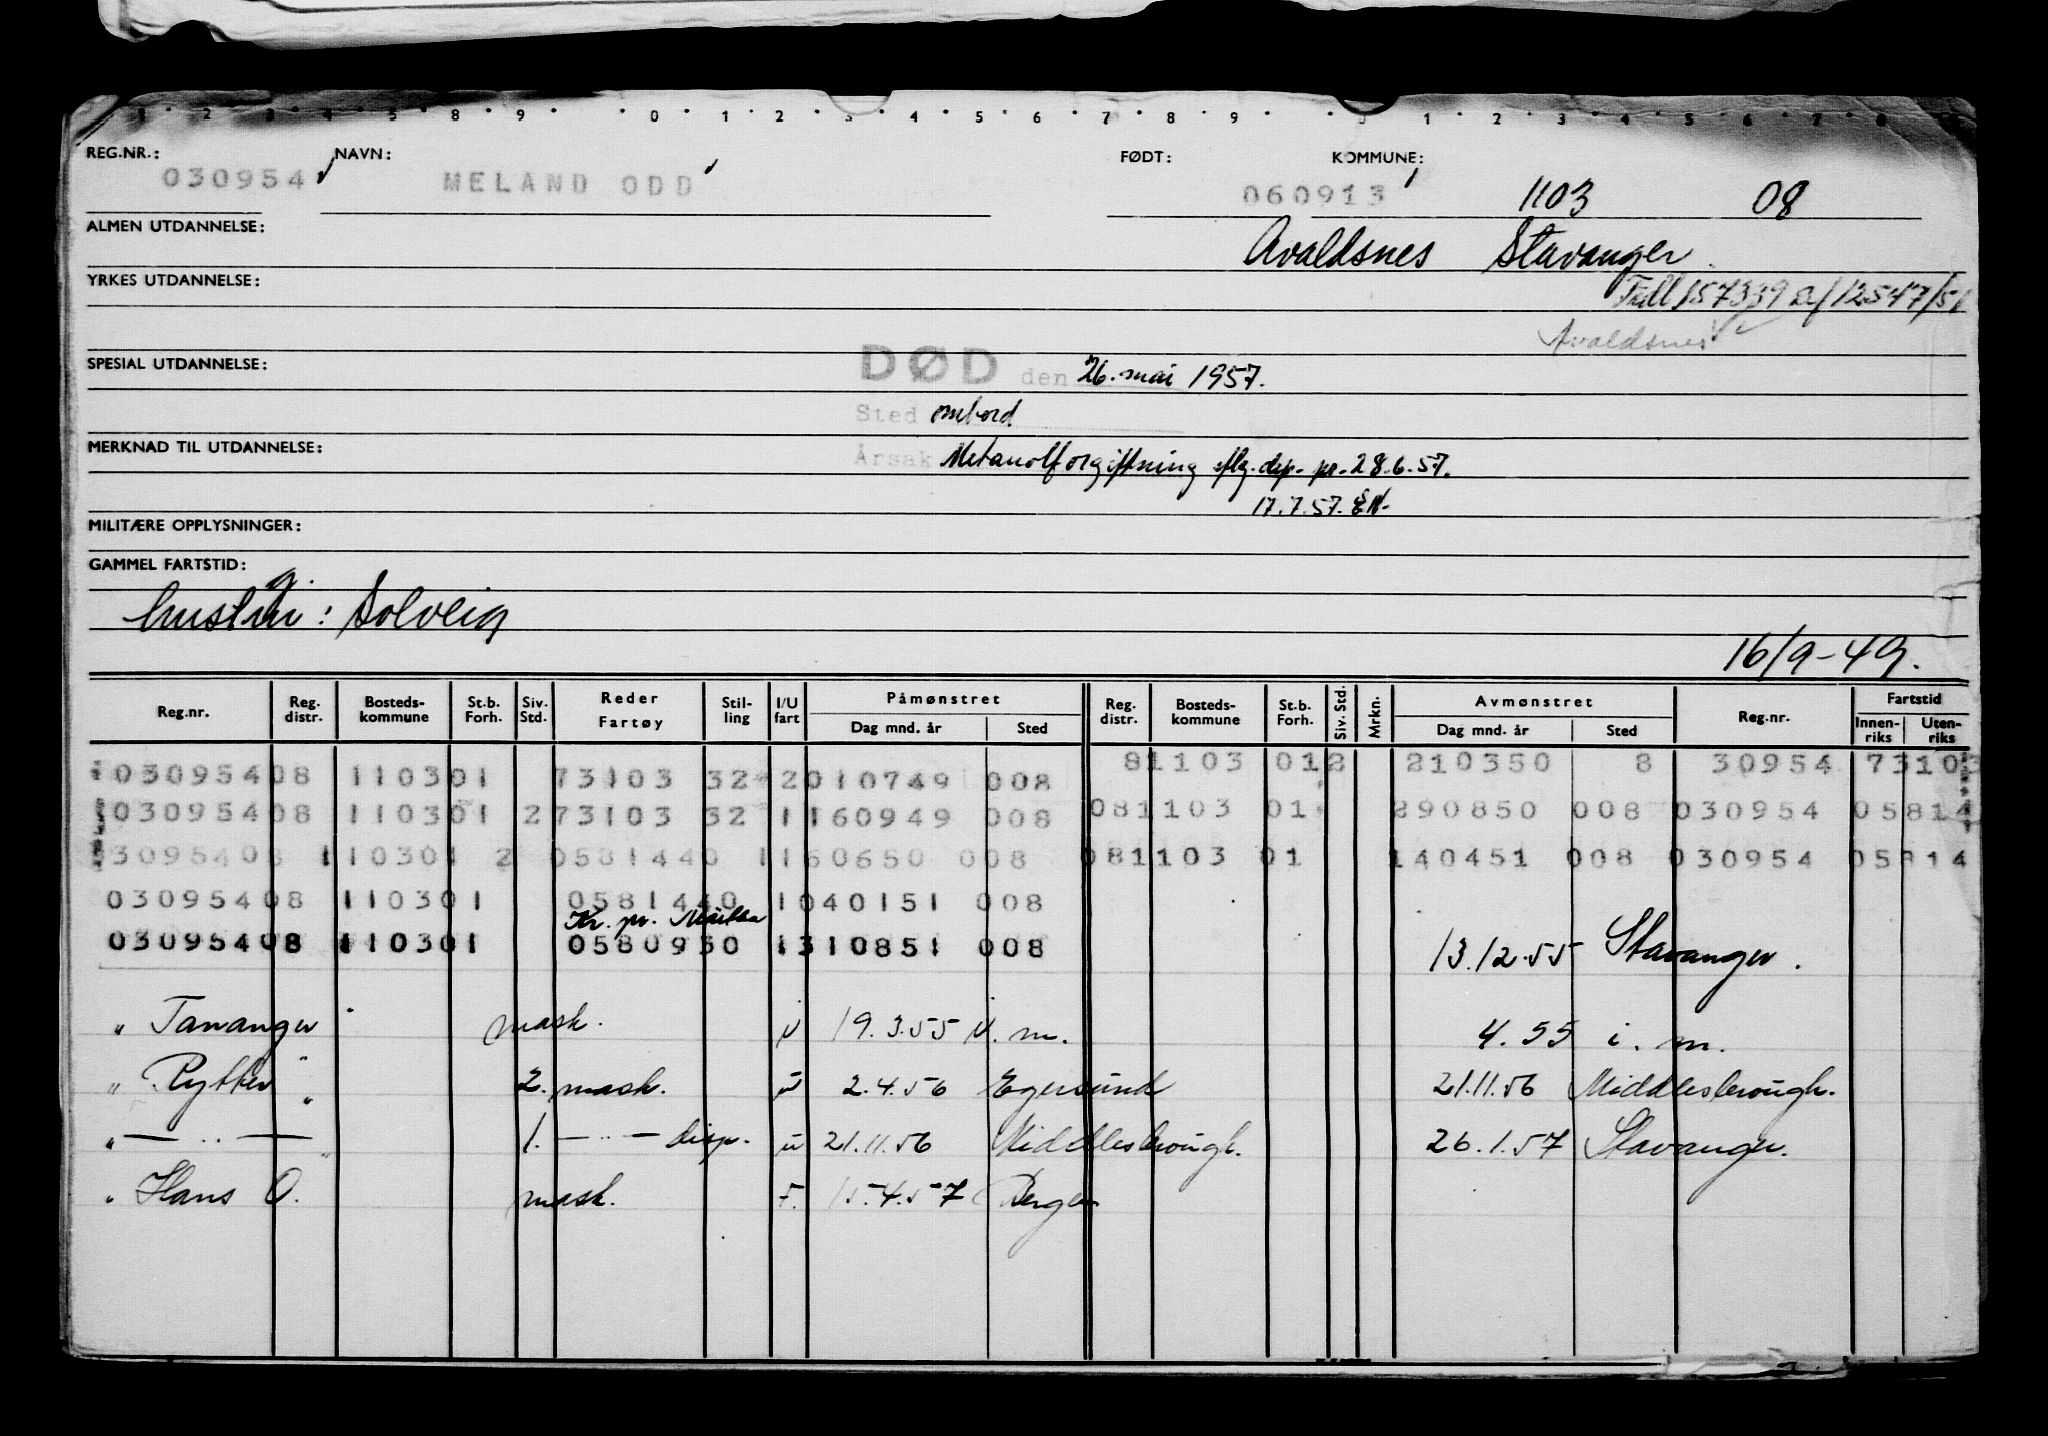 REG.NR.: NAVN: FØDT: KOMMUNE:
030954 MELAND ODD 060913 1103 08
ALMEN UTDANNELSE: Avaldsnes Stavanger
YRKES UTDANNELSE: 157339 12547/51
Avaldsnes
SPESIAL UTDANNELSE: DØD den 26. mai 1957.
Sted ombord
MERKNAD TIL UTDANNELSE: Årsak Metanolforgiftning iflg. dep. pr. 28.6.57.
17.7.57.
MILITÆRE OPPLYSNINGER:
GAMMEL FARTSTID:
hustru: Solveig
16/9-49.
Reg.nr. Reg. distr. Bosteds-kommune St.b. Forh. Siv. Std. Reder Fartøy Stil-ling I/U fart Påmønstret Dag mnd. år Sted Reg. distr. Bosteds-kommune St.b. Forh. Siv. Std. Mrkn. Avmønstret Dag mnd. år Sted Reg.nr. Fartstid Innen-riks Uten-riks
03095408 110301 73103 32 2010749 008 81103 012 210350 8 30954 73103
03095408 110301 273103 32 1160949 008 081103 01 290850 008 030954 05814
3095408 110301 2 0581440 1160650 008 081103 01 140451 008 030954 05814
03095408 110301 0581440 1040151 008
Kr. pr. Märtha
03095408 110301 0580930 1310851 008 13.12.55 Stavanger.
" Tananger " mask. u 19.3.55 i. m. 4.55 i. m.
" Rytter " 2. mask. u 2.4.56 Egersund 21.11.56 Middlesbrough.
" — " — " 1. — " — disp. u 21.11.56 Middlesbrough. 26.1.57 Stavanger.
" Hans O. mask. F. 15.4.57 Bergen